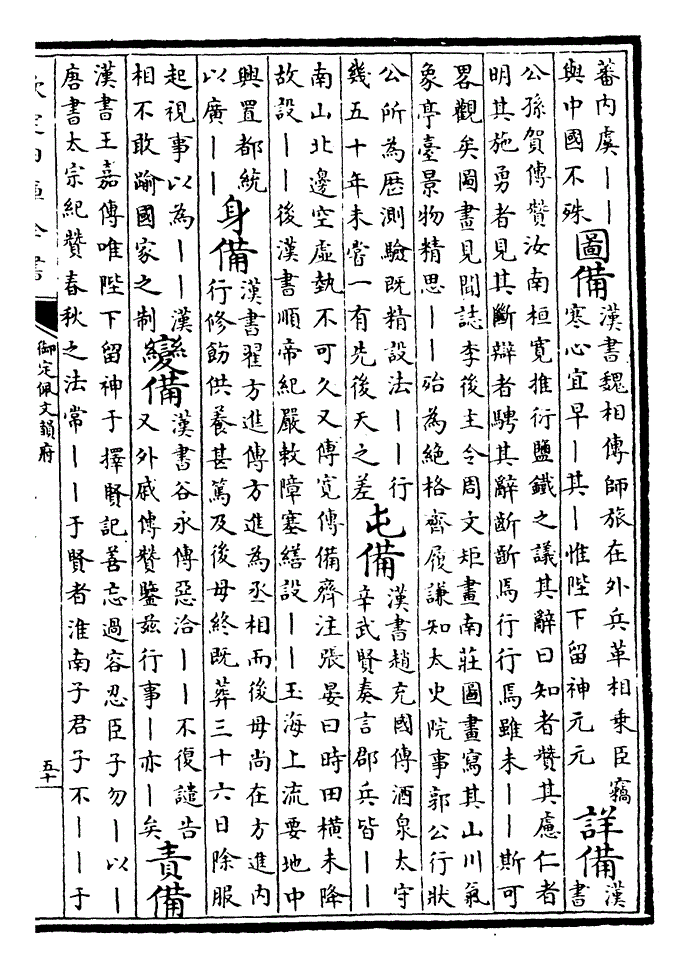 蕃内虞丨丨
與中國不殊
圖備
漢書魏相傳師旅在外兵革相乗臣竊
寒心宜早丨其丨惟陛下留神元元
詳備
漢
書
公孫賀傳贊汝南桓寛推衍鹽鐵之議其辭曰知者贊其慮仁者
明其施勇者見其斷辯者騁其辭齗齗焉行行焉雖未丨丨斯可
畧觀矣圖畫見聞誌李後主令周文矩畫南莊圖畫寫其山川氣
象亭臺景物精思丨丨殆為絶格齊履謙知太史院事郭公行狀
公所為厯測驗既精設法丨丨行
幾五十年未嘗一有先後天之差
屯備
漢書趙充國傳酒泉太守
辛武賢奏言郡兵皆丨丨
南山北邊空虚埶不可久又傅寛傳備齊注張晏曰時田横未降
故設丨丨後漢書順帝紀嚴敕障塞繕設丨丨玉海上流要地中
興置都統
以廣丨丨
身備
漢書翟方進傳方進為丞相而後母尚在方進内
行修飭供養甚篤及後母終既葬三十六日除服
起視事以為丨丨漢
相不敢踰國家之制
變備
漢書谷永傳惡洽丨丨不復譴告
又外戚傳贊鑒兹行事丨亦丨矣
責備
漢書王嘉傳唯陛下留神于擇賢記善忘過容忍臣子勿丨以丨
唐書太宗紀贊春秋之法常丨丨于賢者淮南子君子不丨丨于
欽定四庫全書
御定佩文韻府
五十一